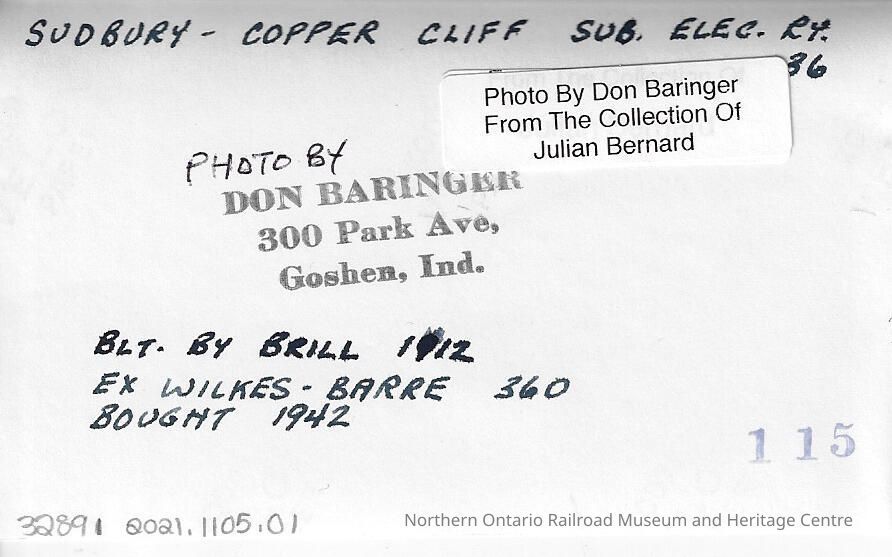 SUDBURY - COPPER CLIFF SUB. ELEC. RY.
36
Photo By Don Baringer
From The Collection Of
Julian Bernard
PHOTO BY
DON BARINGER
300 Park Ave,
Goshen, Ind.
BLT. BY BRILL 1912
EX WILKES-BARRE 360
BOUGHT 1942
115
32891 2021.1105.01
Northern Ontario Railroad Museum and Heritage Centre